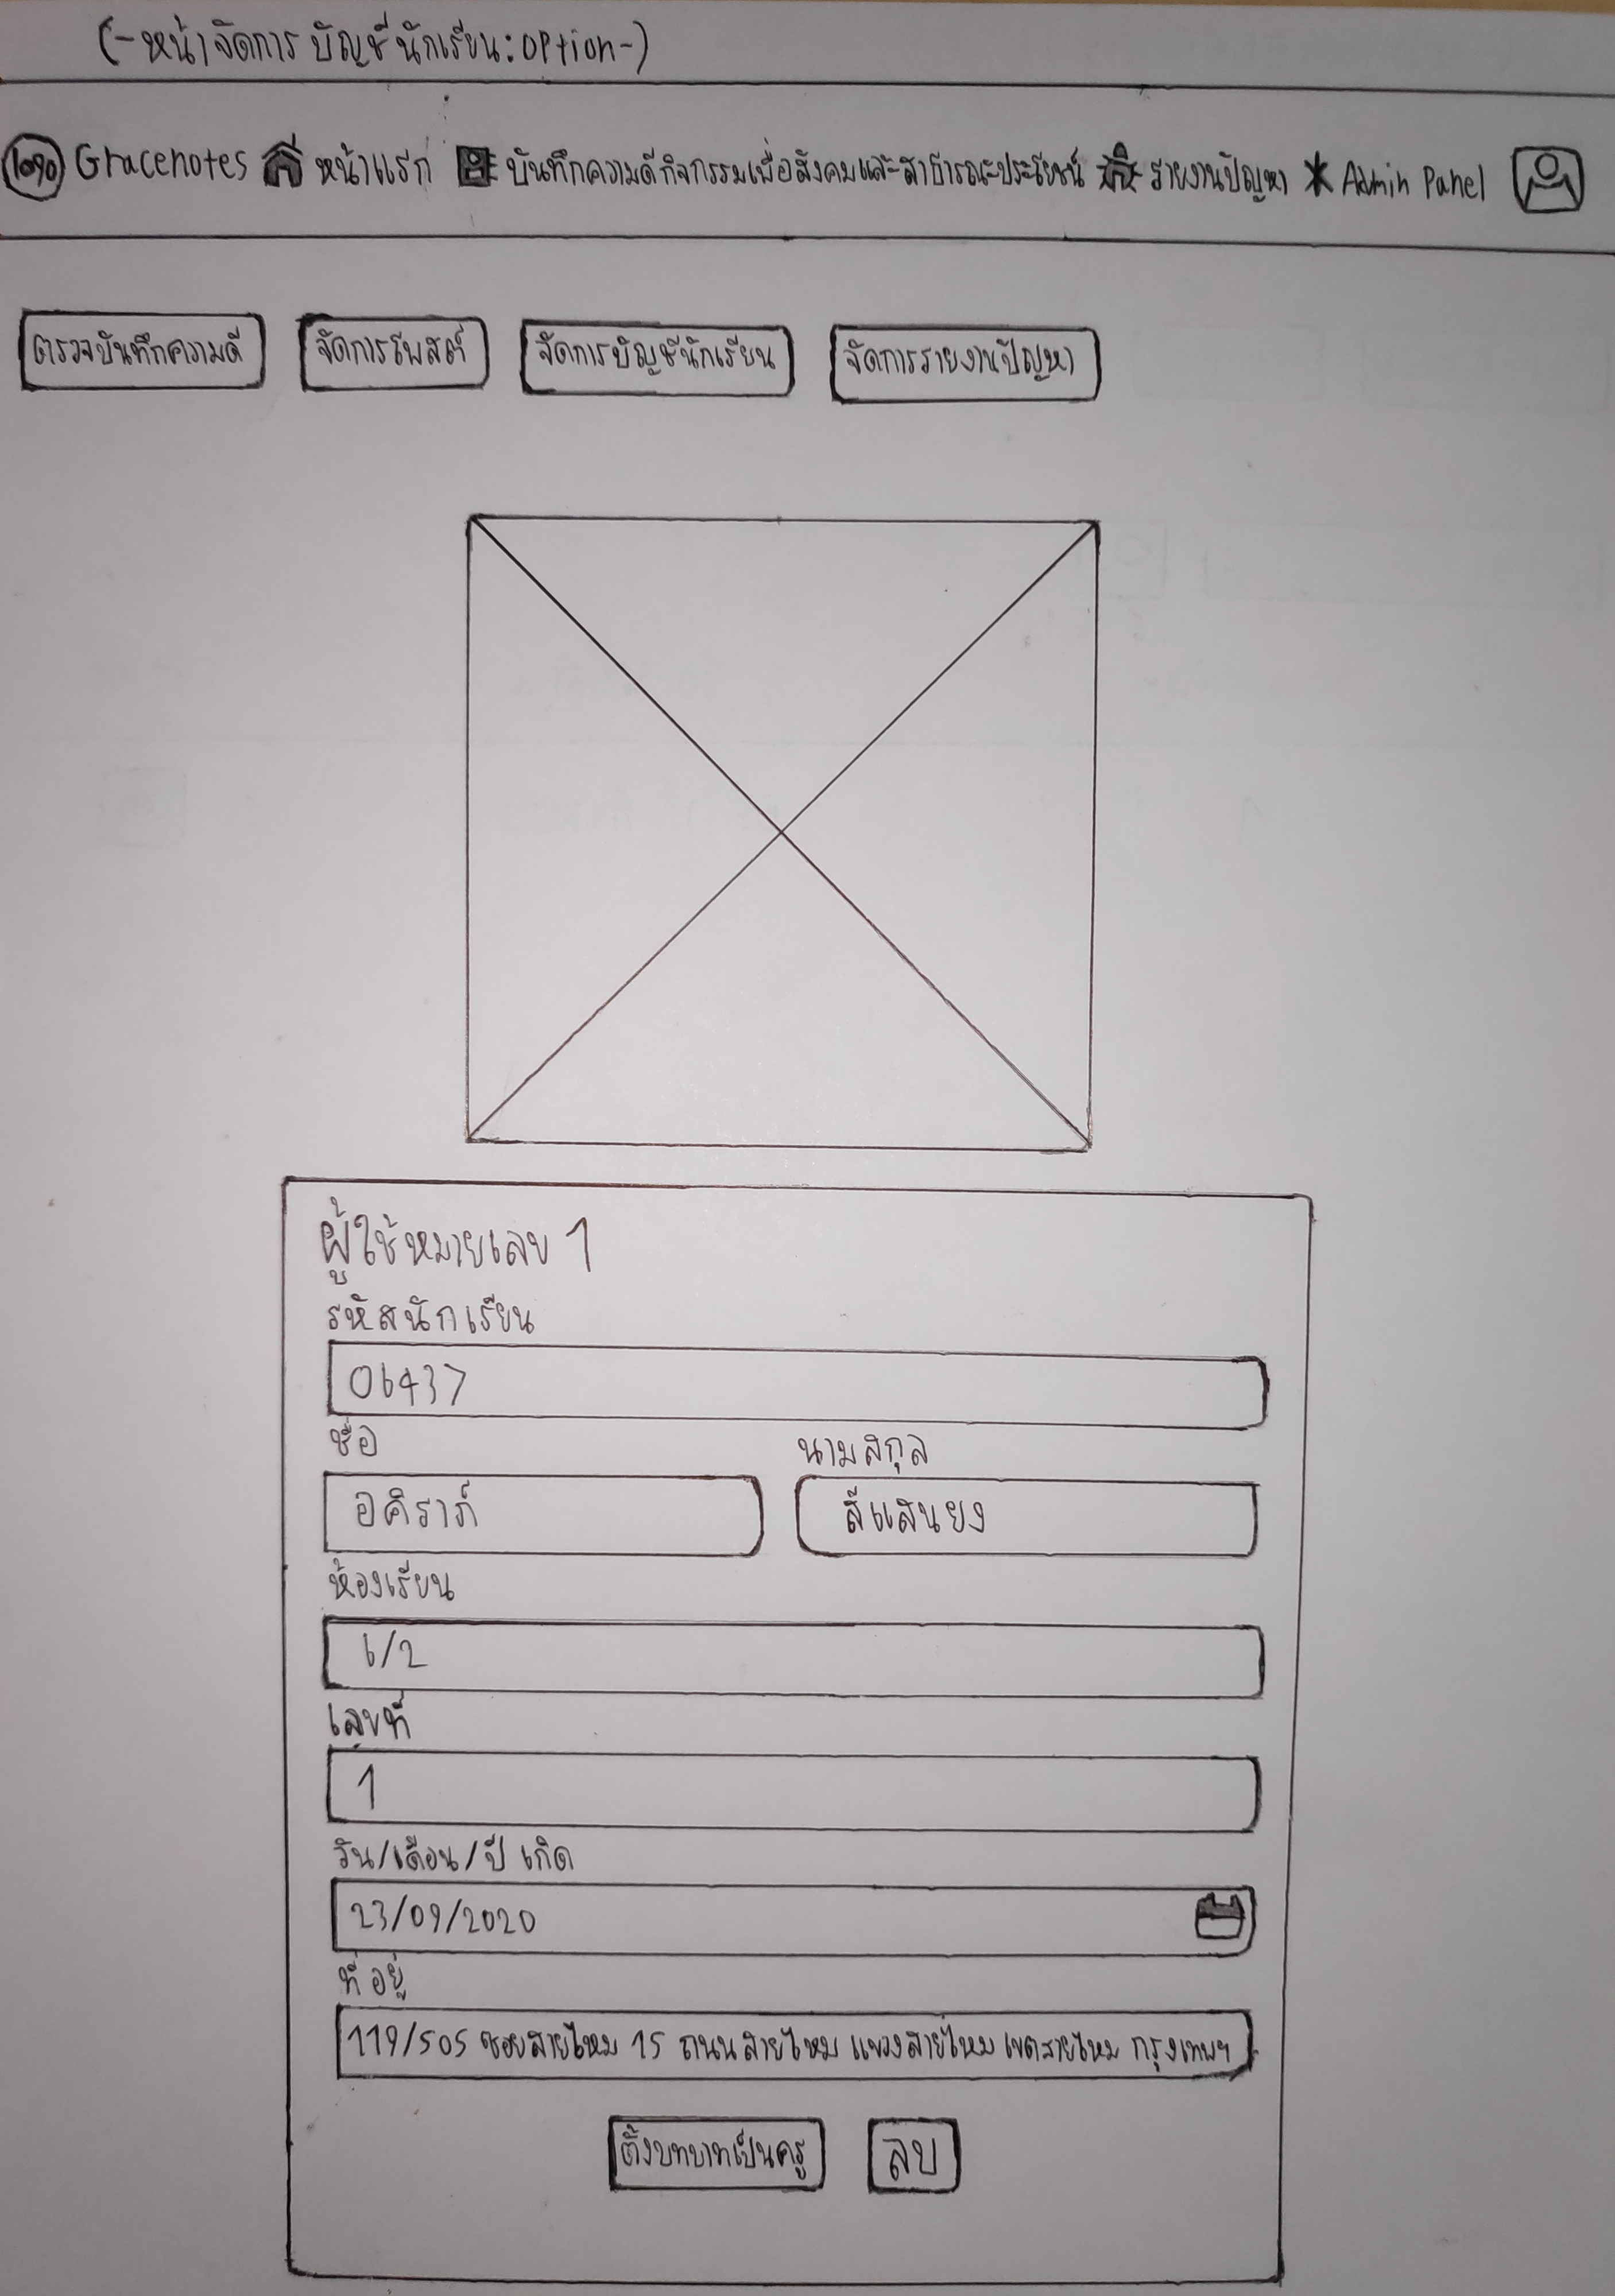 (-หน้าจัดการบัญชีนักเรียน:option-)
Gracenotes หน้าแรก บันทึกความดีกิจกรรมเพื่อสังคมและสาธารณะประโยชน์ รายงานปัญหา Admin Panel
ตรวจบันทึกความดี จัดการโพสต์ จัดการบัญชีนักเรียน จัดการรายงานปัญหา
ผู้ใช้หมายเลข 1
รหัสนักเรียน
06437
ชื่อ นามสกุล
อคิราภ์ ลี้แสนยง
ห้องเรียน
6/2
เลขที่
1
วัน/เดือน/ปี เกิด
23/09/2020
ที่อยู่
119/505 ซอยสายไหม 15 ถนนสายไหม แขวงสายไหม เขตสายไหม กรุงเทพฯ
ตั้งบทบาทเป็นครู ลบ